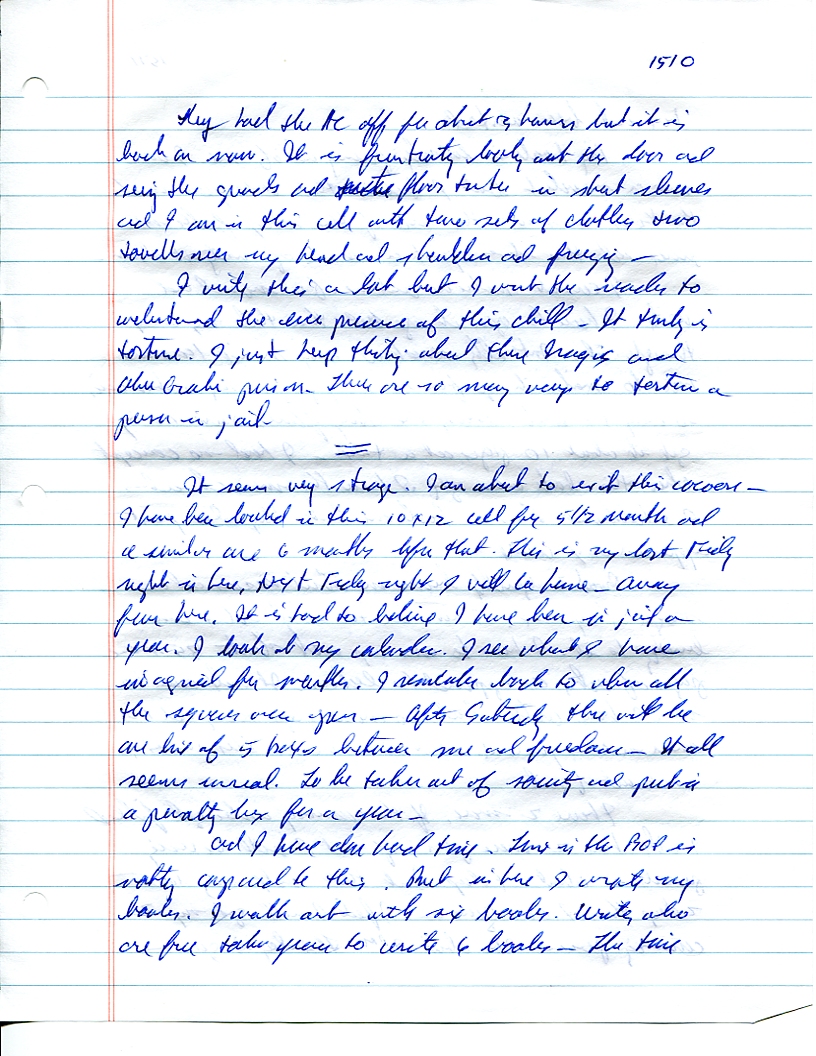 1510
They had the AC off for about 3 hours but it is
back on now. It is frustrating looking out the door and
seeing the guards and floor tender in short sleeves
and I am in this cell with two sets of clothes two
towells over my head and shoulders and freezing —
I write this a lot but I want the reader to
understand the ever presence of this chill - It truly is
torture. I just keep thinking about those Iraqis and
Abu Graib prison - There are so many ways to torture a
person in jail.
It seems very strange. I am about to exit this cocoon —
I have been locked in this 10 x 12 cell for 5 1/2 months and
a similar one 6 months before that. This is my last Friday
night in here, Next Friday night I will be home — away
from here. It is hard to believe I have been in jail a
year. I look at my calendar. I see what I have
imagined for months. I remember back to when all
the squares were open — After Saturday there will be
one line of 5 boxes between me and freedom — It all
seems unreal. To be taken out of society and put in
a penalty box for a year —
and I have done hard time - Time in the BOP is
nothing compared to this. But in here I wrote my
books. I walk out with six books. Writers who
are free take years to write 6 books — The time